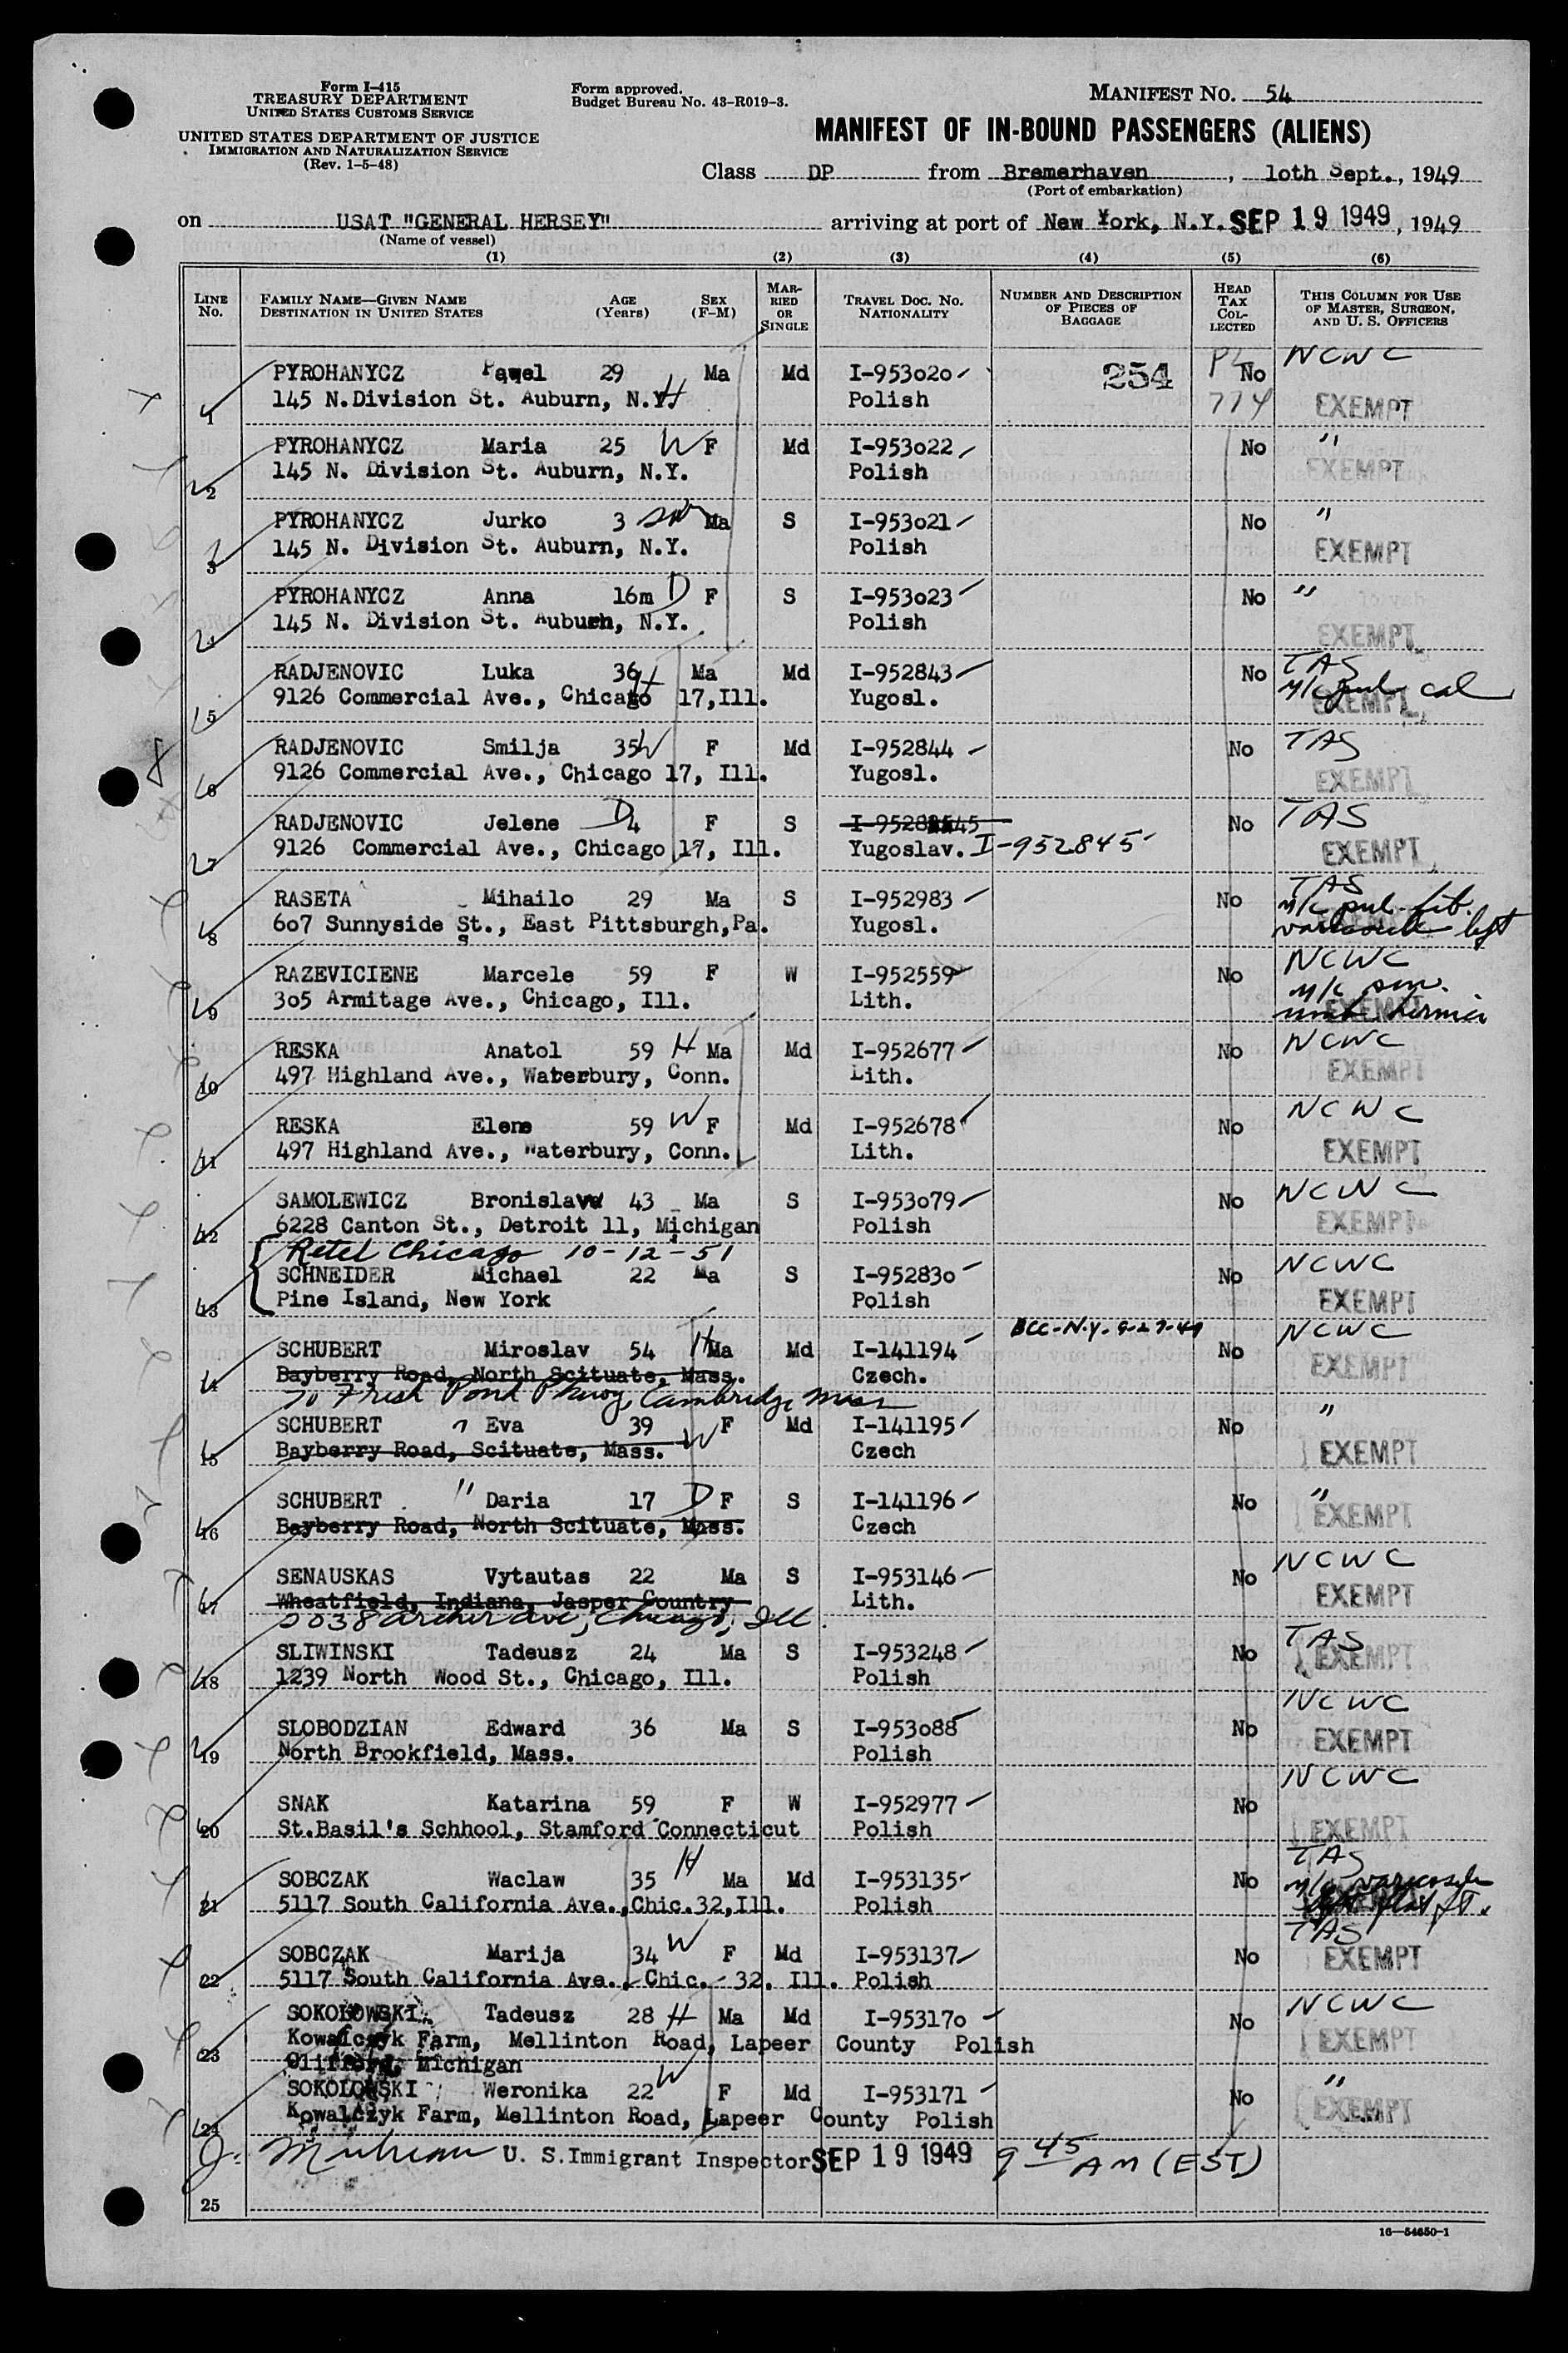 Form I-415
TREASURY DEPARTMENT
UNITED STATES CUSTOMS SERVICE
UNITED STATES DEPARTMENT OF JUSTICE
IMMIGRATION AND NATURALIZATION SERVICE
(Rev. 1-5-48)
Form approved.
Budget Bureau No. 43-R019-3.
MANIFEST NO. 54
MANIFEST OF IN-BOUND PASSENGERS (ALIENS)
Class DP from Bremerhaven, 10th Sept., 1949
(Port of embarkation)
on USAT "GENERAL HERSEY" arriving at port of New York, N.Y. SEP 19 1949, 1949
(Name of vessel)
(1) (2) (3) (4) (5) (6)
LINE No. FAMILY NAME—GIVEN NAME DESTINATION IN UNITED STATES AGE (Years) SEX (F-M) MARRIED OR SINGLE TRAVEL DOC. NO. NATIONALITY NUMBER AND DESCRIPTION OF PIECES OF BAGGAGE HEAD TAX COLLECTED THIS COLUMN FOR USE OF MASTER, SURGEON, AND U. S. OFFICERS
1 PYROHANYCZ Pawel 29 Ma Md I-953020 254 No NCWC
145 N.Division St. Auburn, N.Y. H Polish 774 EXEMPT
2 PYROHANYCZ Maria 25 W F Md I-953022 No "
145 N. Division St. Auburn, N.Y. Polish EXEMPT
3 PYROHANYCZ Jurko 3 son Ma S I-953021 No "
145 N. Division St. Auburn, N.Y. Polish EXEMPT
4 PYROHANYCZ Anna 16m D F S I-953023 No "
145 N. Division St. Auburn, N.Y. Polish EXEMPT
5 RADJENOVIC Luka 36 H Ma Md I-952843 No TAS
9126 Commercial Ave., Chicago 17,Ill. Yugosl. M/c pul cal EXEMPT
6 RADJENOVIC Smilja 35 W F Md I-952844 No TAS
9126 Commercial Ave., Chicago 17, Ill. Yugosl. EXEMPT
7 RADJENOVIC Jelene D 4 F S No TAS
9126 Commercial Ave., Chicago 17, Ill. Yugoslav. I-952845 EXEMPT
8 RASETA Mihailo 29 Ma S I-952983 No TAS
607 Sunnyside St., East Pittsburgh,Pa. Yugosl. M/c pul. fib. left
9 RAZEVICIENE Marcele 59 F W I-952559 No NCWC
305 Armitage Ave., Chicago, Ill. Lith. M/c hernia EXEMPT
10 RESKA Anatol 59 H Ma Md I-952677 No NCWC
497 Highland Ave., Waterbury, Conn. Lith. EXEMPT
11 RESKA Elene 59 W F Md I-952678 No NCWC
497 Highland Ave., Waterbury, Conn. Lith. EXEMPT
12 SAMOLEWICZ Bronislaw 43 Ma S I-953079 No NCWC
6228 Canton St., Detroit 11, Michigan Polish EXEMPT
Retel Chicago 10-12-51
13 SCHNEIDER Michael 22 Ma S I-952830 No NCWC
Pine Island, New York Polish EXEMPT
BCC-N.Y.-9-27-49
14 SCHUBERT Miroslav 54 H Ma Md I-141194 No NCWC
Bayberry Road, North Scituate, Mass. Czech. EXEMPT
70 Fresh Pond Pkwy, Cambridge Mass
15 SCHUBERT " Eva 39 F Md I-141195 No "
Bayberry Road, Scituate, Mass. W Czech EXEMPT
16 SCHUBERT " Daria 17 D F S I-141196 No "
Bayberry Road, North Scituate, Mass. Czech EXEMPT
17 SENAUSKAS Vytautas 22 Ma S I-953146 No NCWC
Wheatfield, Indiana, Jasper Country Lith. EXEMPT
Archer Ave, Chicago, Ill.
18 SLIWINSKI Tadeusz 24 Ma S I-953248 No TAS
1239 North Wood St., Chicago, Ill. Polish EXEMPT
19 SLOBODZIAN Edward 36 Ma S I-953088 No NCWC
North Brookfield, Mass. Polish EXEMPT
20 SNAK Katarina 59 F W I-952977 No NCWC
St.Basil's Schhool, Stamford Connecticut Polish EXEMPT
21 SOBCZAK Waclaw 35 H Ma Md I-953135 No TAS
5117 South California Ave.,Chic.32,Ill. Polish M/c varicocele flat ft.
22 SOBCZAK Marija 34 W F Md I-953137 No TAS
5117 South California Ave., Chic.- 32. Ill. Polish EXEMPT
23 SOKOLOWSKI Tadeusz 28 H Ma Md I-953170 No NCWC
Kowalczyk Farm, Mellinton Road, Lapeer County Polish EXEMPT
Clifford, Michigan
24 SOKOLOWSKI Weronika 22 W F Md I-953171 No "
Kowalczyk Farm, Mellinton Road, Lapeer County Polish EXEMPT
U. S.Immigrant Inspector SEP 19 1949 9 45 AM (EST)
25
16—54650-1